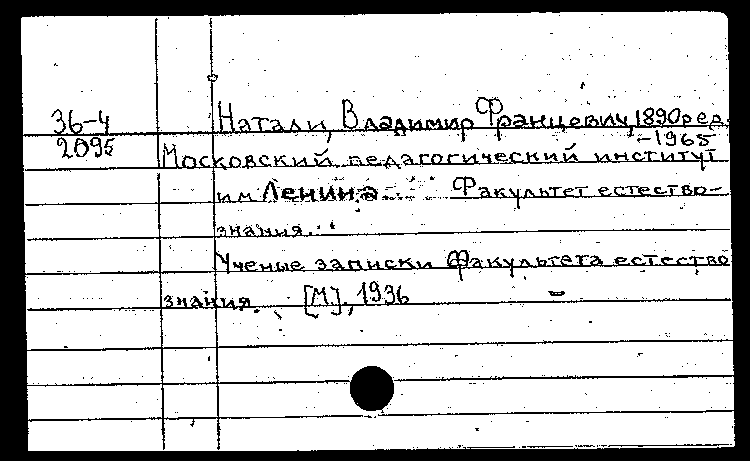 36-4 Натали, Владимир Францевич, 1890 ред.
2095 -1965
Московский педагогический институт
им Ленина. Факультет естество-
знания.
Ученые записки Факультета естество
знания. [М], 1936